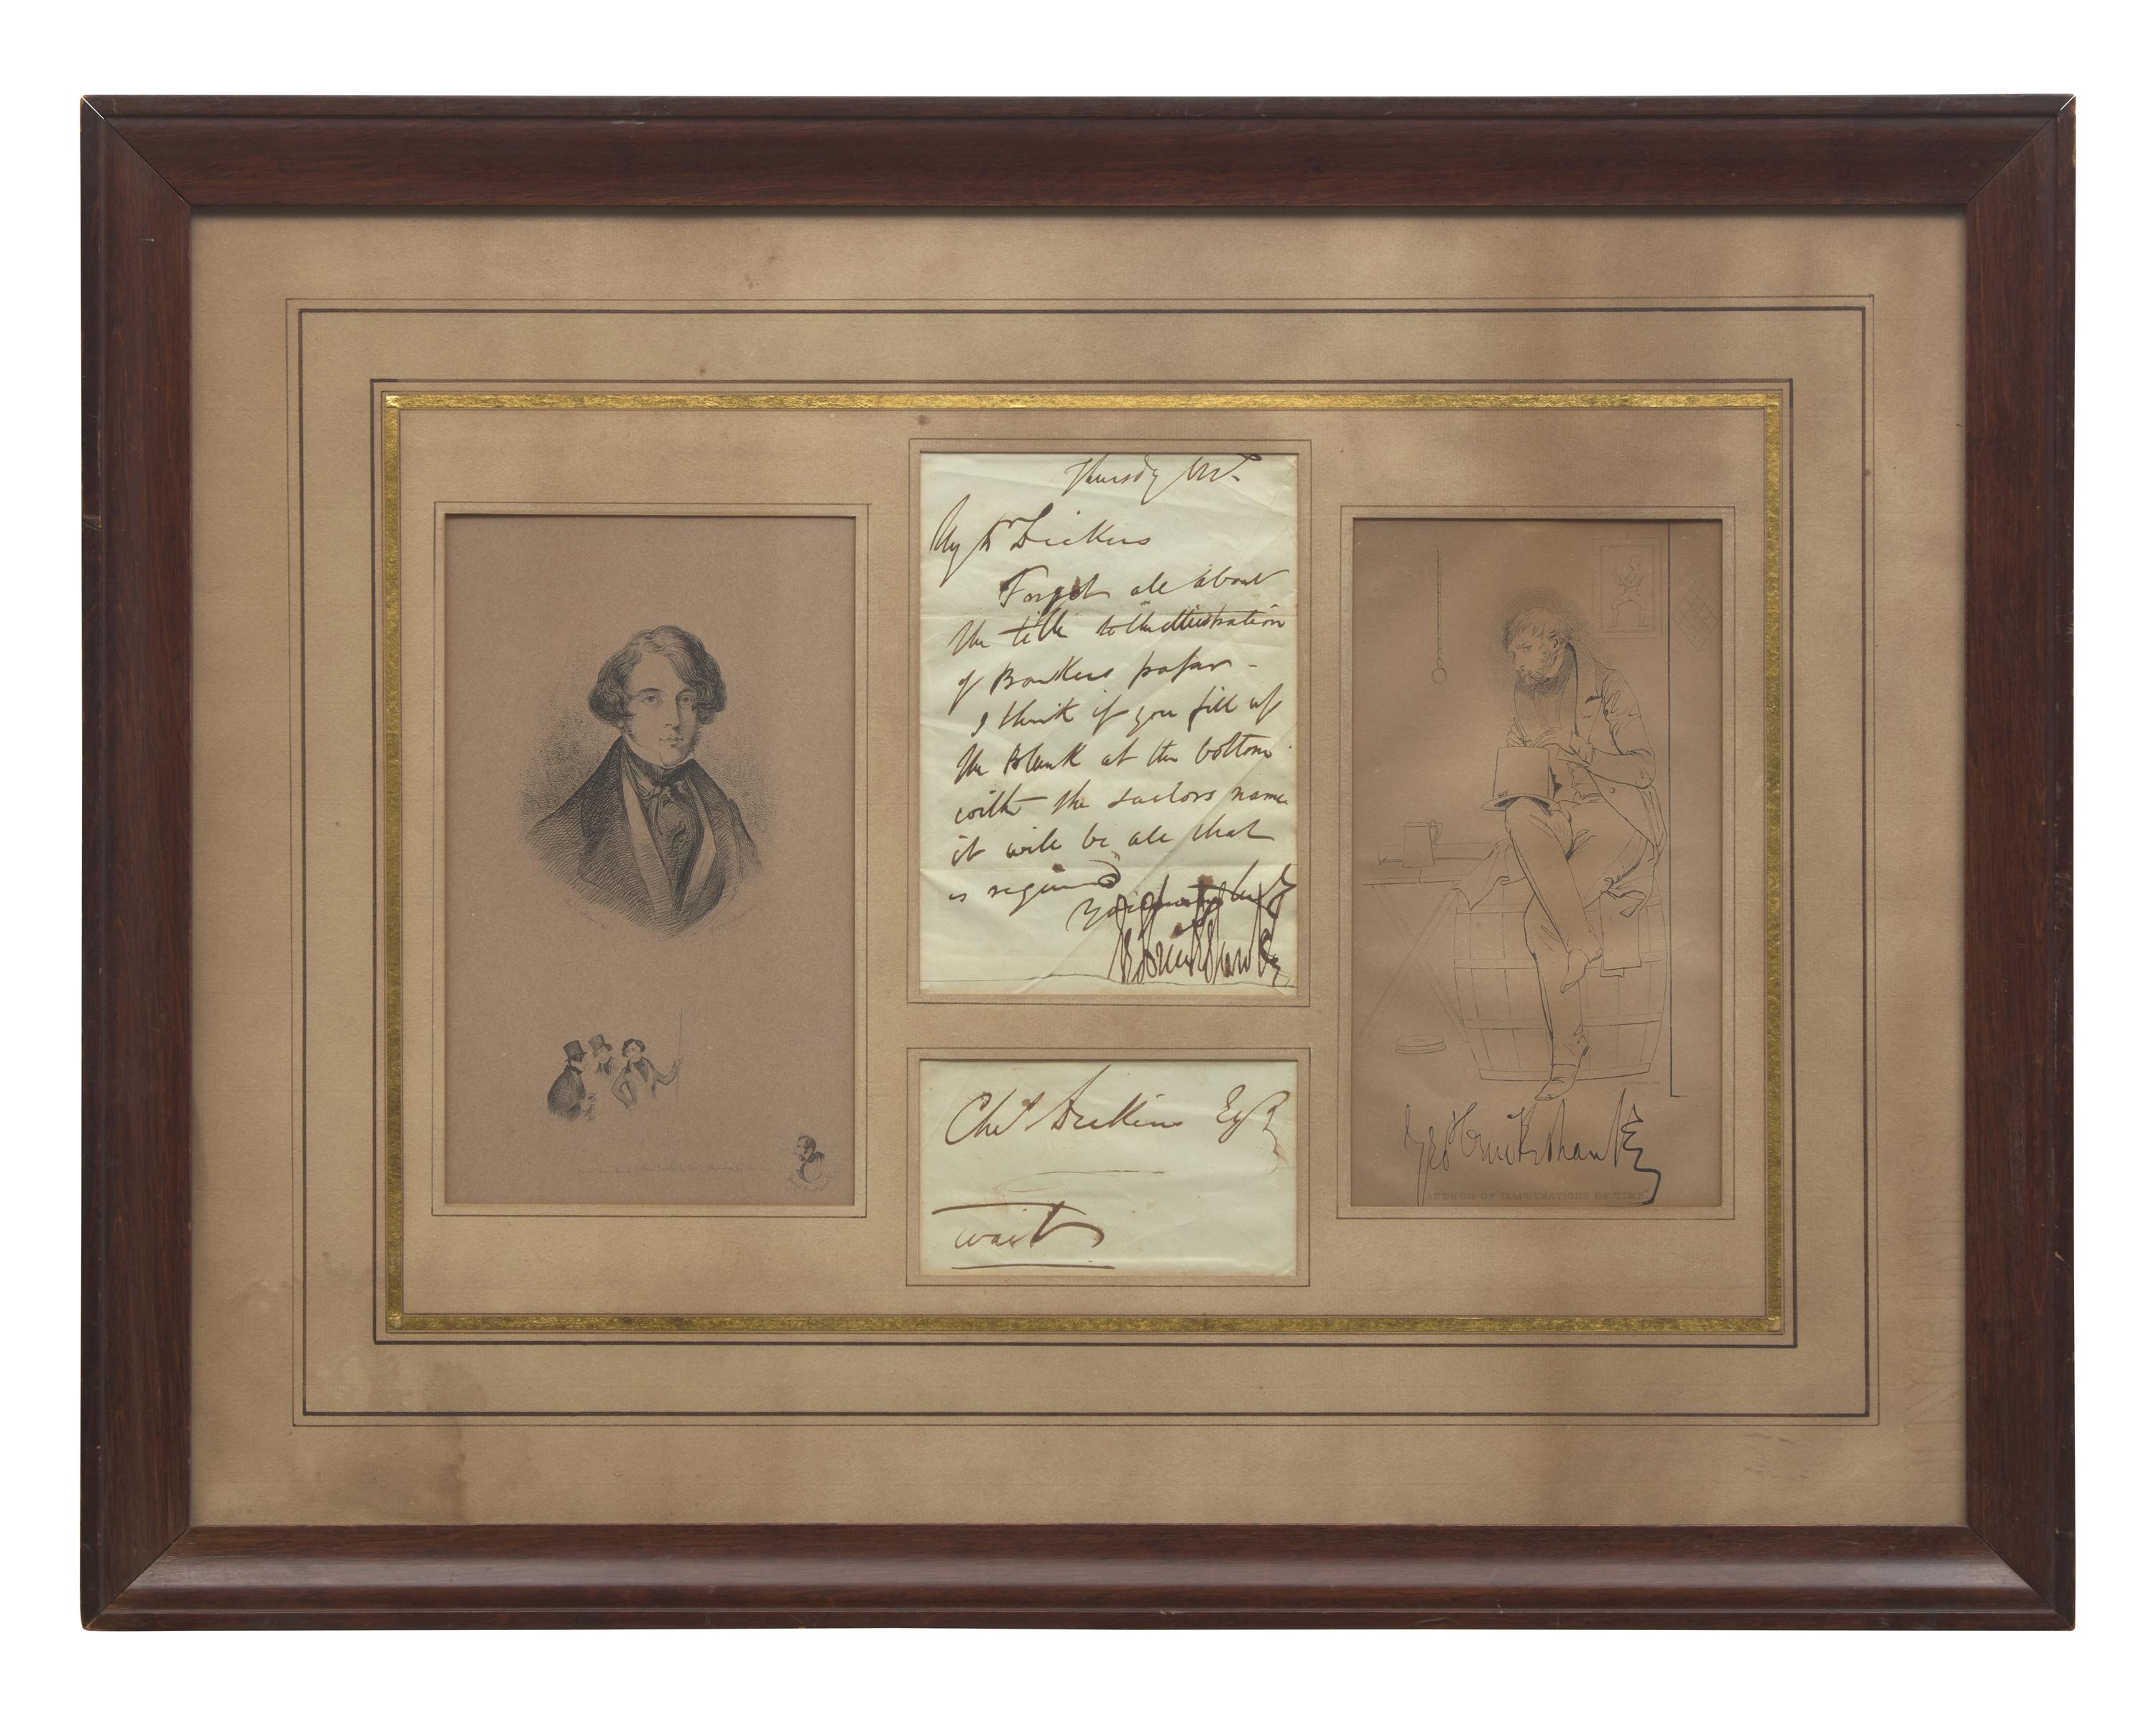 Thursdy
My Dr Dickens
Forgot all about
the title to the illustration
of paper -
I think if you fill up
the Blank at the bottom
with the sailors name
it will be all that
is required
Yours
Geo Cruikshank
Chs Dickens Esqr
wait
Geo Cruikshank
AUTHOR OF ILLUSTRATIONS OF TIME